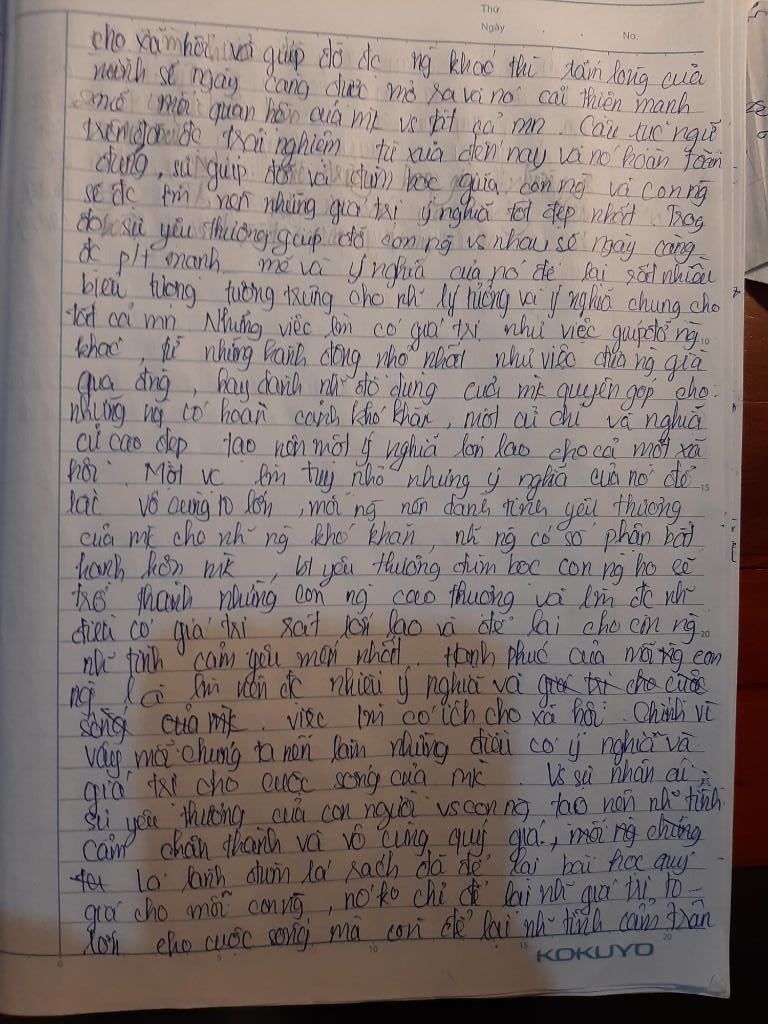 Thứ
Ngày . . No.
cho xã hội, và giúp đỡ đc ng khác thì tấm lòng của
mình sẽ ngày càng được mở ra và nó cải thiện mạnh
mẽ mối quan hệ của mk vs tất cả mn. Câu tục ngữ
trên đc trải nghiệm từ xưa đến nay và nó hoàn toàn
đúng, sự giúp đỡ và đùm bọc giữa con ng và con ng
sẽ đc lm nên những giá trị ý nghĩa tốt đẹp nhất. Trog
đó, sự yêu thương giúp đỡ con ng vs nhau sẽ ngày càng
đc p/t mạnh mẽ và ý nghĩa của nó để lại rất nhiều
biểu tượng tượng trưng cho nh~ lý tưởng và ý nghĩa chung cho
tất cả mn. Những việc lm có giá trị như việc giúp đỡ ng
khác, từ những hành động nhỏ nhất như việc đưa ng già
qua đng, hay dành nh~ đồ dùng cuả mk quyên góp cho
những ng có hoàn cảnh khó khăn, một cử chỉ và nghĩa
cử cao đẹp tạo nên một ý nghĩa lớn lao cho cả một xã
hội. Một vc lm tuy nhỏ nhưng ý nghĩa của nó để
lại vô cùng to lớn, mỗi ng nên dành tình yêu thương
của mk cho nh~ ng khó khăn, nh~ ng có số phận bất
hạnh hơn mk, bt yêu thương đùm bọc con ng họ sẽ
trở thành những con ng cao thượng và lm đc nh~
điều có giá trị rất lớn lao và để lại cho con ng
nh~ tình cảm yêu mến nhất. Hạnh phúc của mỗi ng con
ng là lm nên đc nhiều ý nghĩa và giá trị cho cuộc
sống của mk. việc lm có ích cho xã hội. Chính vì
vậy mỗi chúng ta nên làm những điều có ý nghĩa và
giá trị cho cuộc sống của mk. Vs sự nhân ái
sự yêu thương của con người vs con ng tạo nên nh~ tình
cảm chân thành và vô cùng quý giá, mỗi ng chúng
ta lá lành đùm lá rách đã để lại bài học quý
giá cho mỗi con ng, nó ko chỉ để lại nh~ giá trị to
lớn cho cuộc sống mà còn để lại nh~ tình cảm trân
KOKUYO